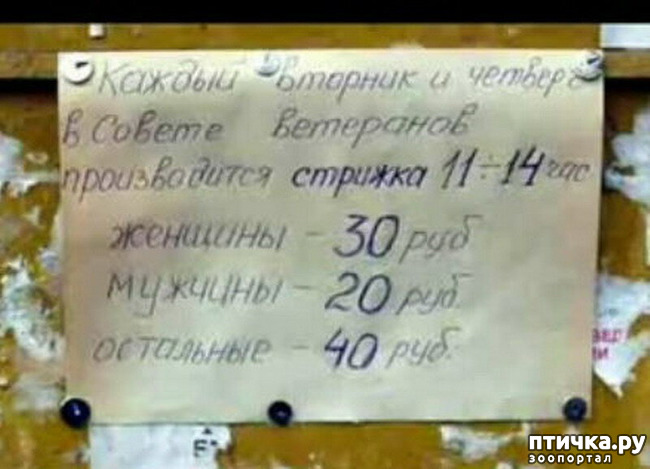 Каждый вторник и четверг
в Совете ветеранов
производится стрижка 11÷14 час
женщины – 30 руб
мужчины – 20 руб.
остальные – 40 руб.
птичка.ру
зоопортал